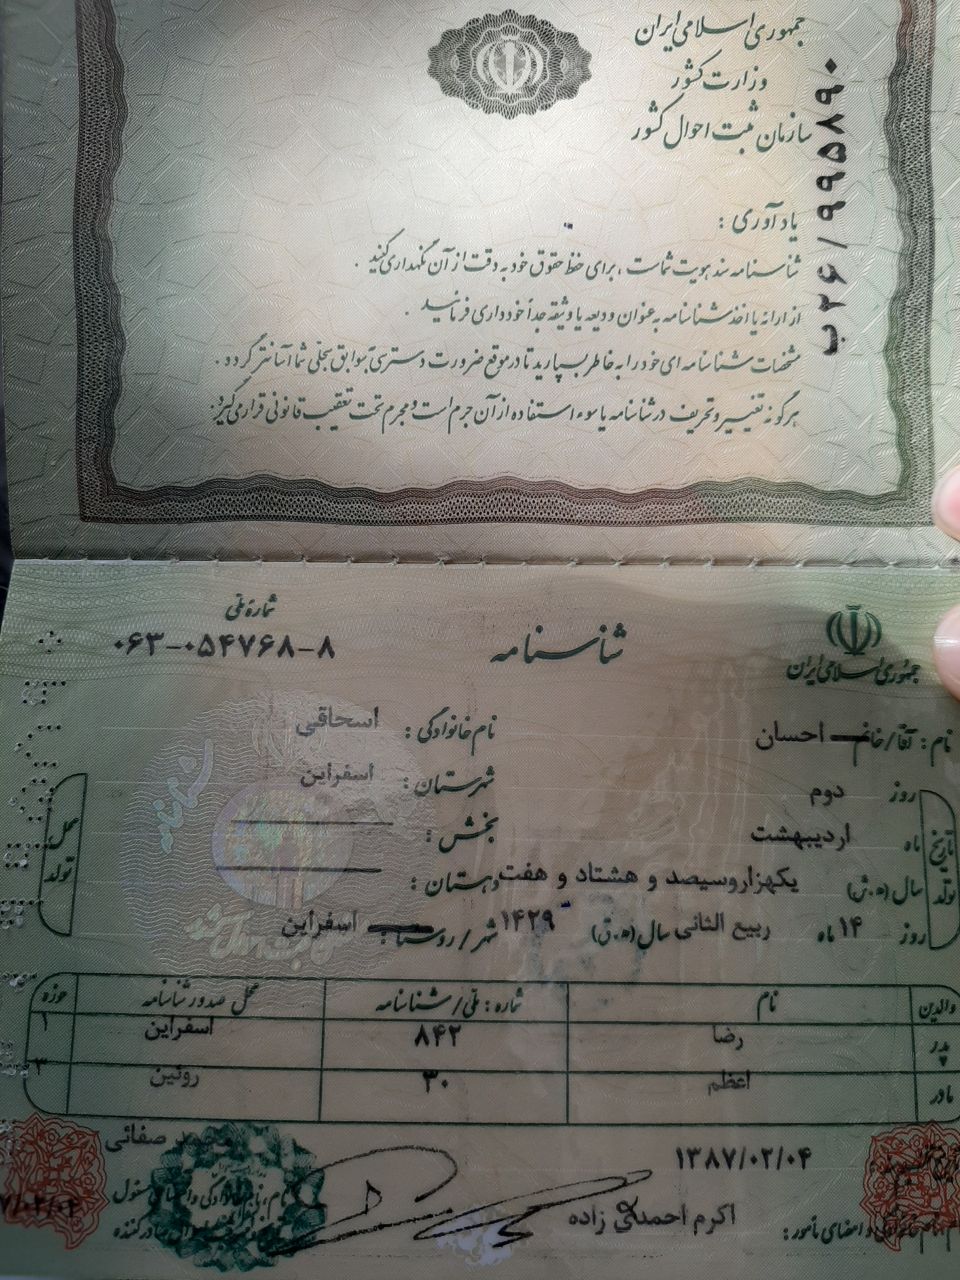 جمهوری اسلامی ایران
وزارت کشور
سازمان ثبت احوال کشور
ب۲۶/۹۹۵۸۹۰
یادآوری :
شناسنامه سند هویت شماست ، برای حفظ حقوق خود به دقت از آن نگهداری کنید .
از ارائه یا اخذ شناسنامه به عنوان ودیعه یا وثیقه جداً خودداری فرمائید .
مشخصات شناسنامه ای خود را به خاطر بسپارید تا در موقع ضرورت دسترسی به سوابق سجلی شما آسانتر گردد .
هرگونه تغییر و تحریف در شناسنامه یا سوء استفاده از آن جرم است و مجرم تحت تعقیب قانونی قرار می گیرد .
جمهوری اسلامی ایران
شناسنامه
شماره ملی
۰۶۳-۰۵۴۷۶۸-۸
نام : آقا/خانم احسان نام خانوادگی : اسحاقی
تاریخ تولد روز دوم شهرستان : اسفراین محل تولد
ماه اردیبهشت بخش :
سال (ه.ش) یکهزاروسیصد و هشتاد و هفت دهستان :
روز ۱۴ ماه ربیع الثانی سال (ه.ق) ۱۴۲۹ شهر/روستا : اسفراین
والدین نام شماره : ملی/شناسنامه محل صدور شناسنامه حوزه
پدر رضا ۸۴۲ اسفراین ۱
مادر اعظم ۳۰ روئین ۳
۱۳۸۷/۰۲/۰۴ صفائی
اکرم احمدقی زاده
نام،نام خانوادگی و امضای مأمور :
نام،نام خانوادگی و امضای مسئول